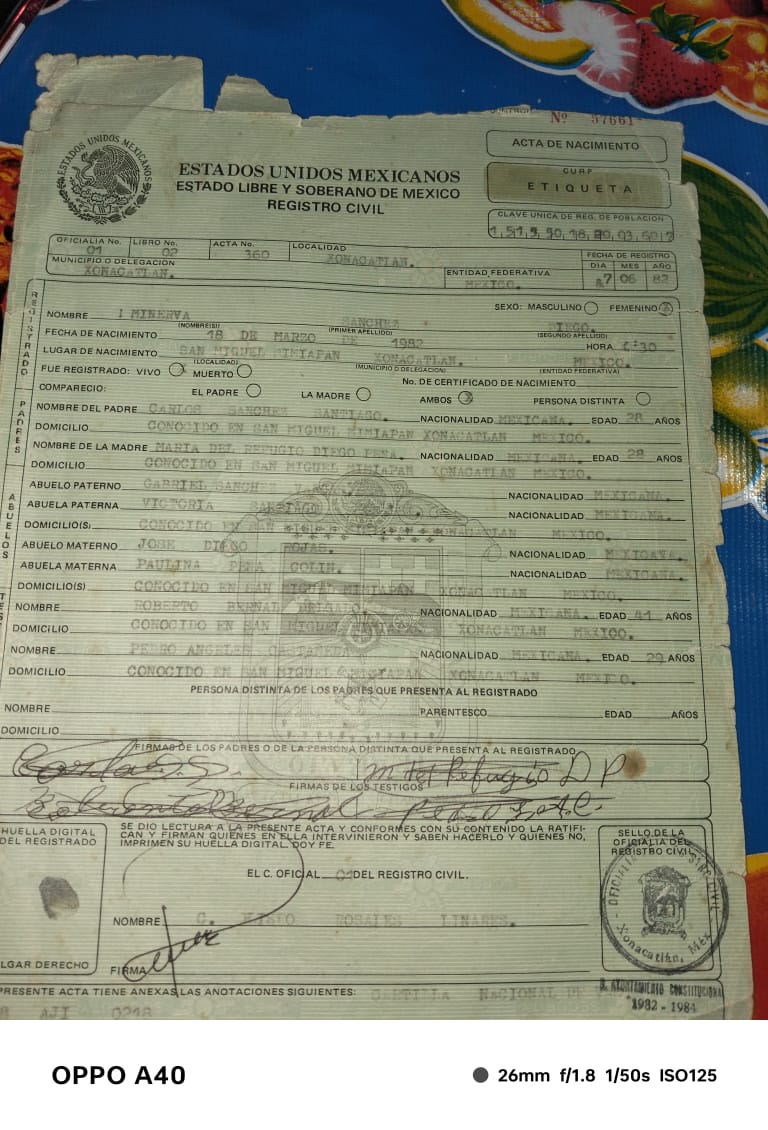 CONTROL Nº 57661
ACTA DE NACIMIENTO
ESTADOS UNIDOS MEXICANOS
CURP
ETIQUETA
ESTADOS UNIDOS MEXICANOS
ESTADO LIBRE Y SOBERANO DE MEXICO
REGISTRO CIVIL
CLAVE UNICA DE REG. DE POBLACION
OFICIALIA No. 01 LIBRO No. 02 ACTA No. 360 LOCALIDAD XONACATLAN.
FECHA DE REGISTRO
DIA MES AÑO
MUNICIPIO O DELEGACION XONACATLAN. ENTIDAD FEDERATIVA MEXICO. 06 82
REGISTRADO
SEXO: MASCULINO FEMENINO
NOMBRE MINERVA SANCHEZ DIEGO.
(NOMBRE(S) (PRIMER APELLIDO) (SEGUNDO APELLIDO)
FECHA DE NACIMIENTO 18 DE MARZO DE 1982 HORA
LUGAR DE NACIMIENTO SAN MIGUEL MIMIAPAN XONACATLAN. MEXICO.
(LOCALIDAD) (MUNICIPIO O DELEGACION) (ENTIDAD FEDERATIVA)
FUE REGISTRADO: VIVO MUERTO No. DE CERTIFICADO DE NACIMIENTO
COMPARECIO: EL PADRE LA MADRE AMBOS PERSONA DISTINTA
PADRES
NOMBRE DEL PADRE CARLOS SANCHEZ SANTIAGO. NACIONALIDAD MEXICANA. EDAD 28 AÑOS
DOMICILIO CONOCIDO EN SAN MIGUEL MIMIAPAN XONACATLAN MEXICO.
NOMBRE DE LA MADRE MARIA DEL REFUGIO DIEGO PEÑA. NACIONALIDAD MEXICANA. EDAD 28 AÑOS
DOMICILIO CONOCIDO EN SAN MIGUEL MIMIAPAN XONACATLAN MEXICO.
ABUELOS
ABUELO PATERNO GABRIEL SANCHEZ NACIONALIDAD MEXICANA.
ABUELA PATERNA VICTORIA SANTIAGO NACIONALIDAD MEXICANA.
DOMICILIO(S) CONOCIDO EN SAN MIGUEL MIMIAPAN XONACATLAN MEXICO.
ABUELO MATERNO JOSE DIEGO ROJAS. NACIONALIDAD MEXICANA.
ABUELA MATERNA PAULINA PEÑA COLIN. NACIONALIDAD MEXICANA.
DOMICILIO(S) CONOCIDO EN SAN MIGUEL MIMIAPAN XONACATLAN MEXICO.
NOMBRE ROBERTO BERNAL DELGADO NACIONALIDAD MEXICANA. EDAD 41 AÑOS
DOMICILIO CONOCIDO EN SAN MIGUEL MIMIAPAN XONACATLAN MEXICO.
NOMBRE PEDRO ANGELES CASTAÑEDA NACIONALIDAD MEXICANA. EDAD 29 AÑOS
DOMICILIO CONOCIDO EN SAN MIGUEL MIMIAPAN XONACATLAN MEXICO.
PERSONA DISTINTA DE LOS PADRES QUE PRESENTA AL REGISTRADO
NOMBRE PARENTESCO EDAD AÑOS
DOMICILIO
FIRMAS DE LOS PADRES O DE LA PERSONA DISTINTA QUE PRESENTA AL REGISTRADO
M del Refugio D P
FIRMAS DE LOS TESTIGOS
HUELLA DIGITAL
DEL REGISTRADO
SE DIO LECTURA A LA PRESENTE ACTA Y CONFORMES CON SU CONTENIDO LA RATIFI-
CAN Y FIRMAN QUIENES EN ELLA INTERVINIERON Y SABEN HACERLO Y QUIENES NO,
IMPRIMEN SU HUELLA DIGITAL. DOY FE.
SELLO DE LA
OFICIALIA DEL
REGISTRO CIVIL
EL C. OFICIAL 01 DEL REGISTRO CIVIL.
NOMBRE C. ROSALES LINARES.
FIRMA
LGAR DERECHO
Xonacatlán, Méx
PRESENTE ACTA TIENE ANEXAS LAS ANOTACIONES SIGUIENTES: CARTILLA NACIONAL DE
H. AYUNTAMIENTO CONSTITUCIONAL
1982 - 1984
AJI 0218
OPPO A40
26mm f/1.8 1/50s ISO125